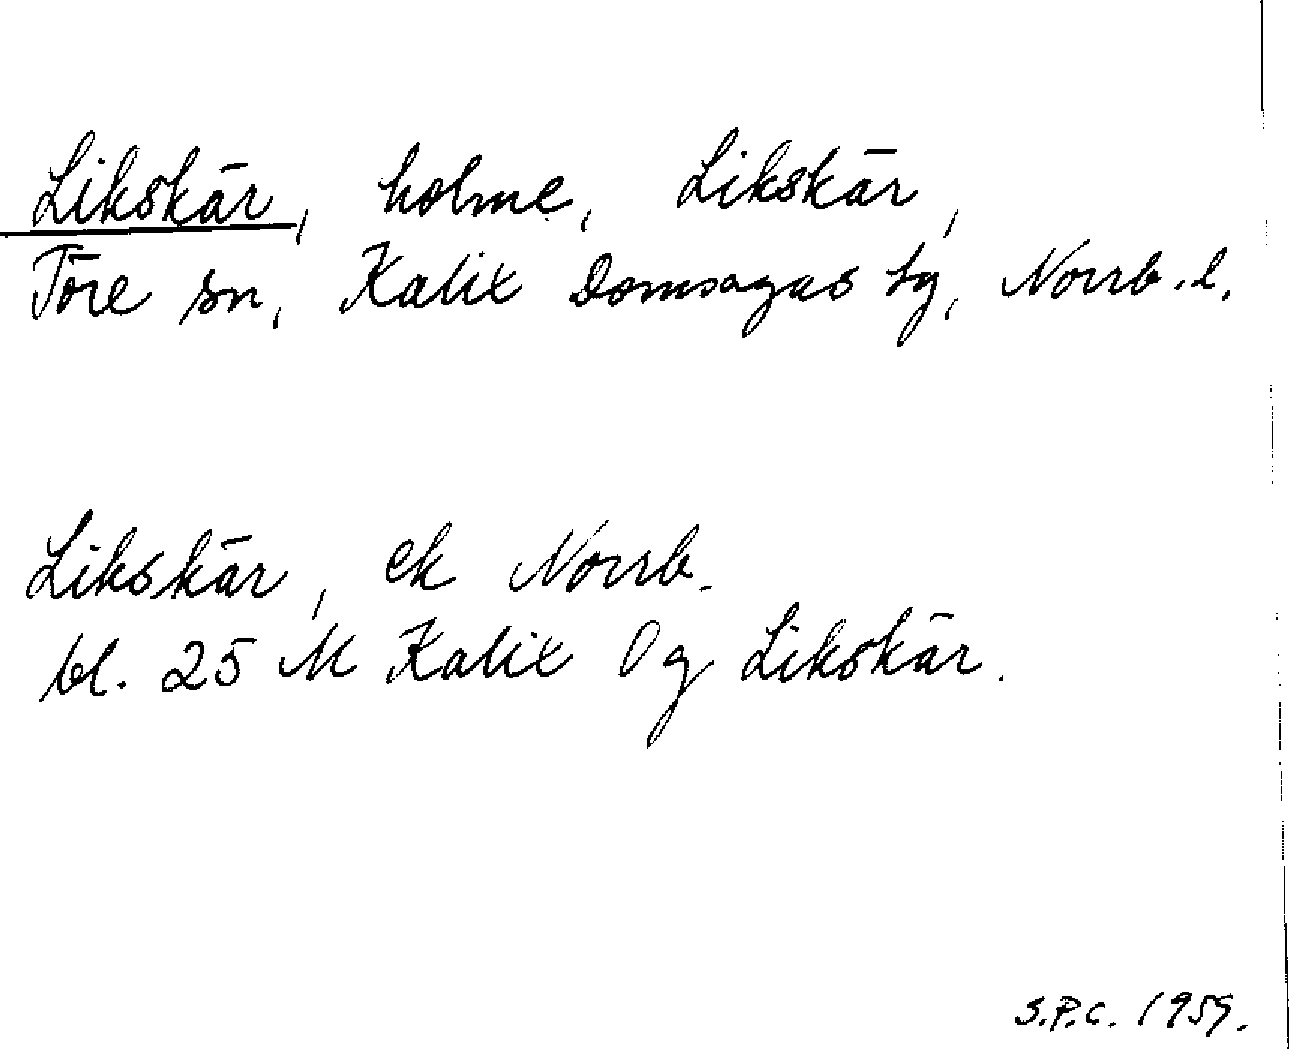 Likskär, holme, Likskär,
Töre sn, Kalix Domsagas tg, Norrb. l.
Likskär, ek Norrb.
bl. 25 M Kalix Og Likskär.
S.P.C. 1959.